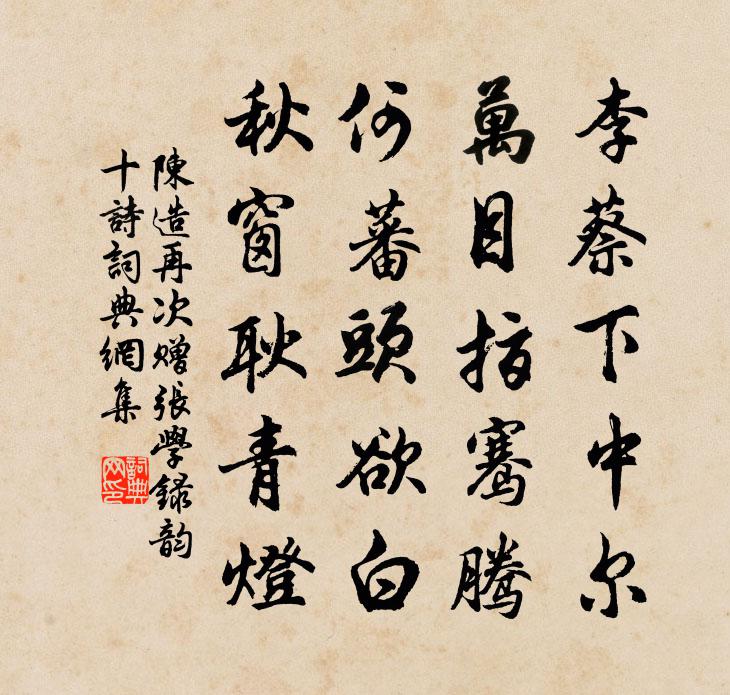 李蔡下中尔
萬目指騫騰
何蕃頭欲白
秋窗耿青燈
陳造再次贈張學録韵
十詩詞典網集
詞典
网印